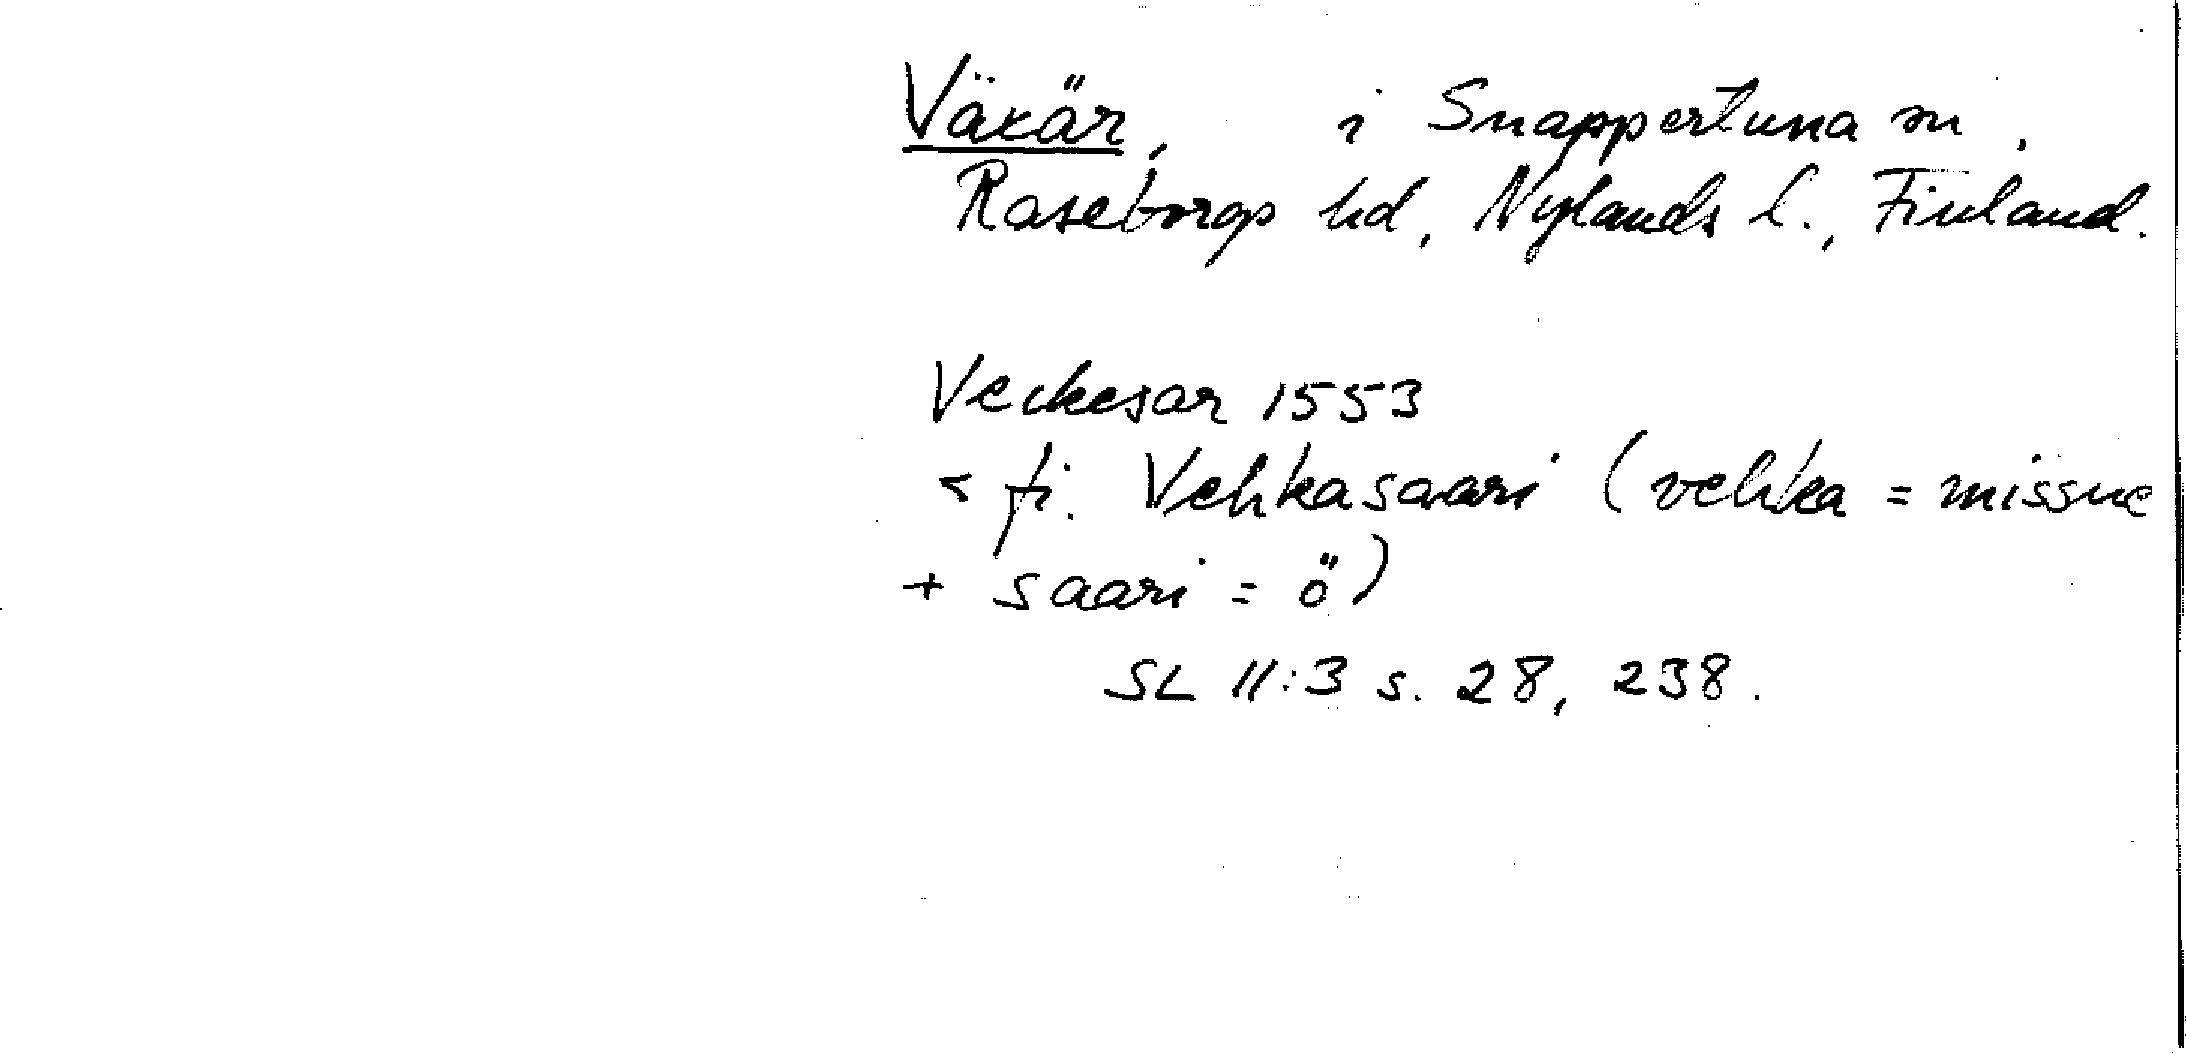 Väkär, i Snappertuna sn,
Raseborgs hd, Nylands l., Finland.
Veckesar 1553
< fi. Vehkasaari (vehka = missne
+ saari = ö)
SL II:3 s. 28, 238.